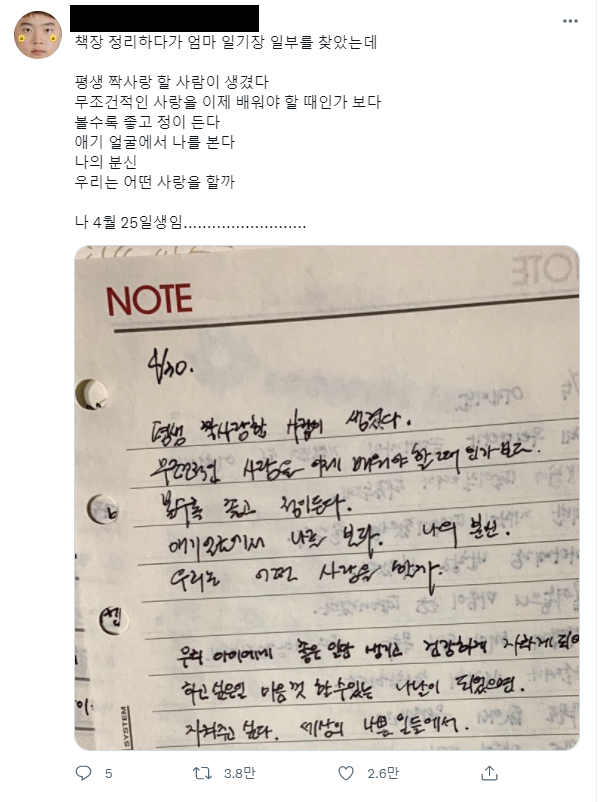 책장 정리하다가 엄마 일기장 일부를 찾았는데
평생 짝사랑 할 사람이 생겼다
무조건적인 사랑을 이제 배워야 할 때인가 보다
볼수록 좋고 정이 든다
애기 얼굴에서 나를 본다
나의 분신
우리는 어떤 사랑을 할까
나 4월 25일생임..........................
NOTE
4/30.
평생 짝사랑할 사람이 생겼다.
무조건적인 사랑을 이제 배워야 할때 인가보다.
볼수록 좋고 정이든다.
애기얼굴에서 나를 본다. 나의 분신.
우리는 어떤 사랑을 할까.
우리 아이에게 좋은 일만 생기고 건강하게 자라게 되어
하고싶은일 마음껏 할수있는 나날이 되었으면.
지켜주고 싶다. 세상의 나쁜 일들에서.
SYSTEM
5 3.8만 2.6만